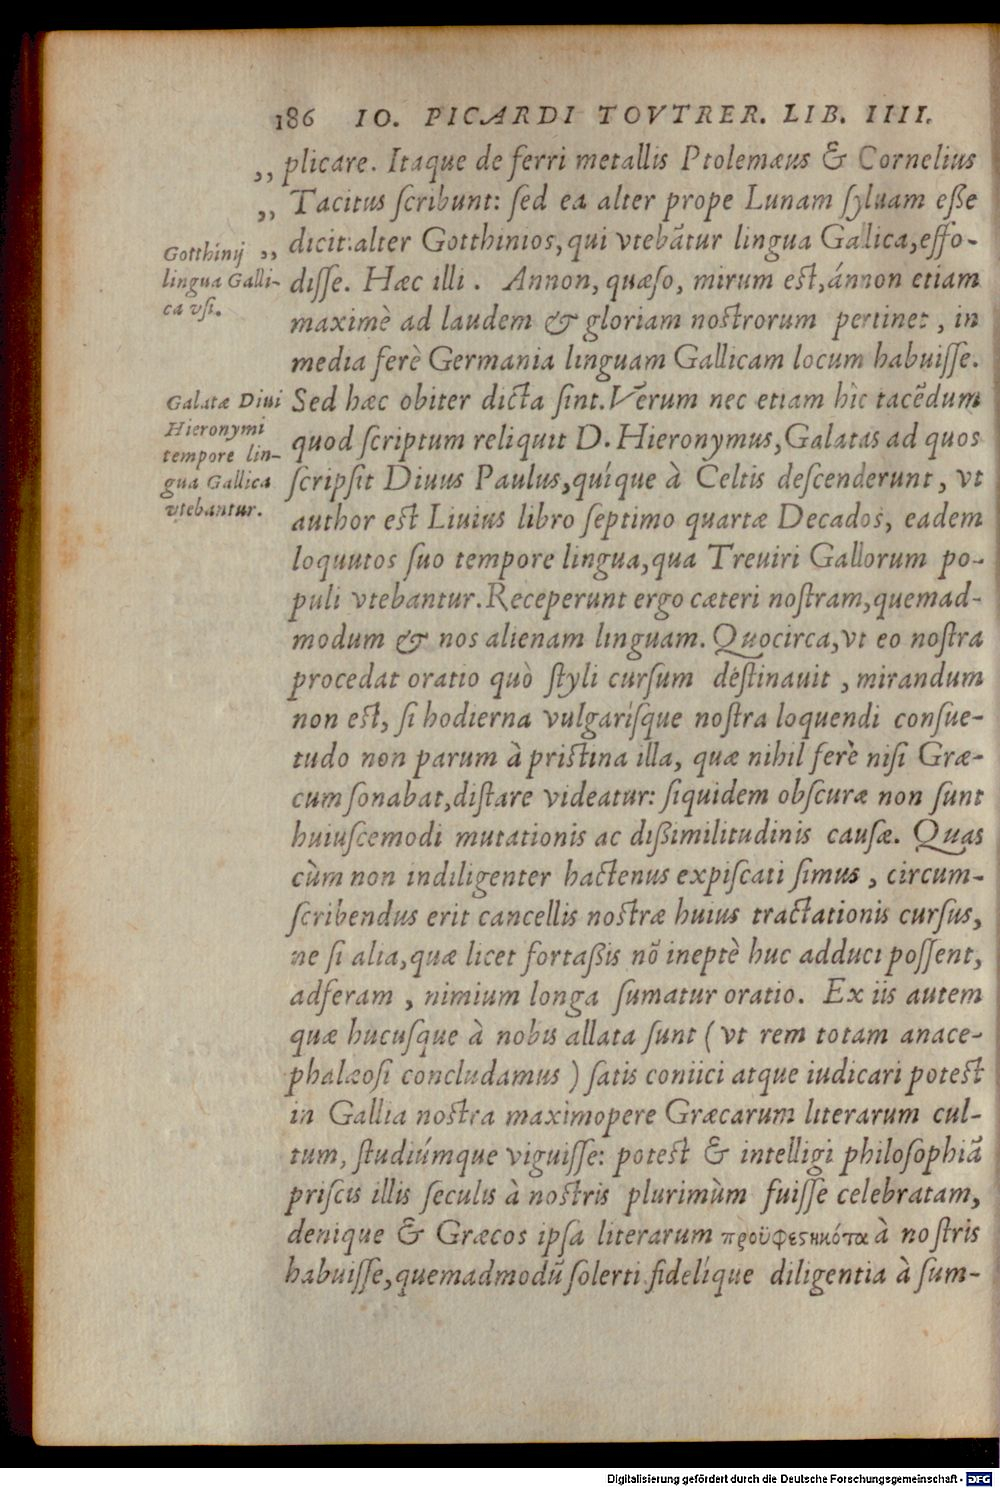 186 IO. PICARDI TOVTRER. LIB. IIII.
,, plicare. Itaque de ferri metallis Ptolemæus & Cornelius
,, Tacitus ſcribunt: ſed ea alter prope Lunam ſyluam eße
,, dicit: alter Gotthinios, qui vtebãtur lingua Gallica, effo-
diſſe. Hæc illi. Annon, quæſo, mirum est, ánnon etiam
maximè ad laudem & gloriam nostrorum pertinet, in
media ferè Germania linguam Gallicam locum habuiſſe.
Sed hæc obiter dicta ſint. Verum nec etiam hîc tacẽdum
quod ſcriptum reliquit D. Hieronymus, Galatas ad quos
ſcripſit Diuus Paulus, quíque à Celtis deſcenderunt, vt
author est Liuius libro ſeptimo quartæ Decados, eadem
loquutos ſuo tempore lingua, qua Treuiri Gallorum po-
puli vtebantur. Receperunt ergo cæteri noſtram, quemad-
modum & nos alienam linguam. Quocirca, vt eo noſtra
procedat oratio quò ſtyli curſum deſtinauit, mirandum
non eſt, ſi hodierna vulgaríſque noſtra loquendi conſue-
tudo non parum à pristina illa, quæ nihil ferè niſi Græ-
cum ſonabat, diſtare videatur: ſiquidem obſcuræ non ſunt
huiuſcemodi mutationis ac dißimilitudinis cauſæ. Quas
cùm non indiligenter hactenus expiſcati ſimus, circum-
ſcribendus erit cancellis nostræ huius tractationis curſus,
ne ſi alia, quæ licet fortaßis nõ ineptè huc adduci poſſent,
adferam, nimium longa ſumatur oratio. Ex iis autem
quæ hucuſque à nobis allata ſunt (vt rem totam anace-
phalæoſi concludamus) ſatis coniici atque iudicari potest
in Gallia nostra maximopere Græcarum literarum cul-
tum, ſtudiúmque viguiſſe: potest & intelligi philoſophiã
priſcis illis ſeculis à nostris plurimùm fuiſſe celebratam,
denique & Græcos ipſa literarum προϋφεστηκότα à noſtris
habuiſſe, quemadmodũ ſolerti fidelíque diligentia à ſum-
Gotthinij
lingua Galli-
ca vſi.
Galatæ Diui
Hieronymi
tempore lin-
gua Gallica
vtebantur.
Digitalisierung gefördert durch die Deutsche Forschungsgemeinschaft - DFG